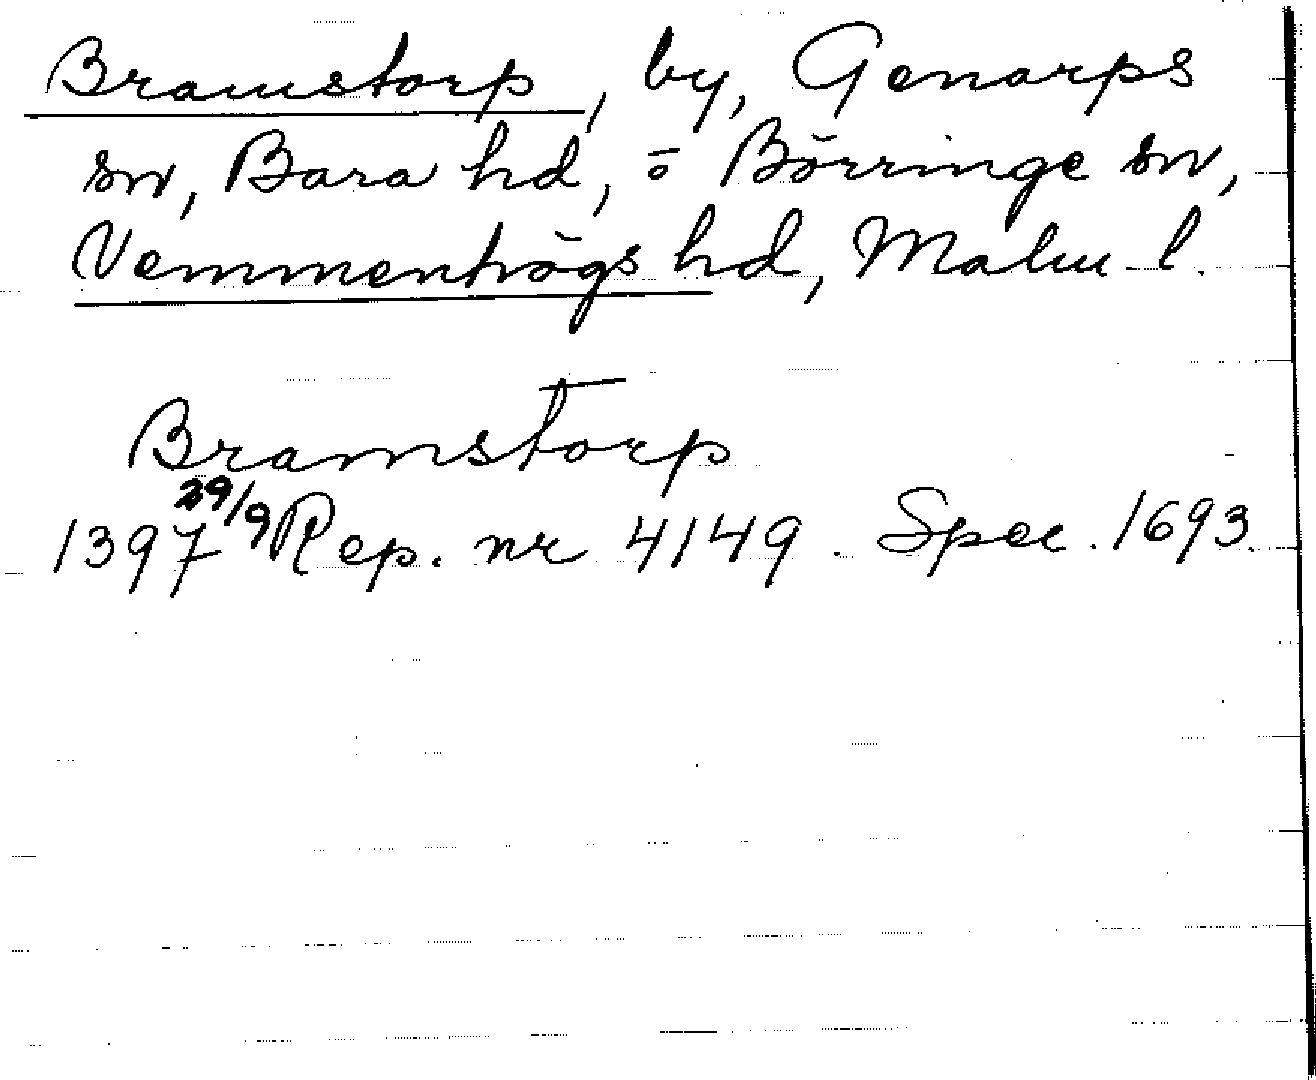 Bramstorp, by, Genarps
sn, Bara hd, o Börringe sn,
Vemmenhögs hd, Malm. l.
Bramstorp
1397 29/9 Rep. nr 4149. Spec. 1693.